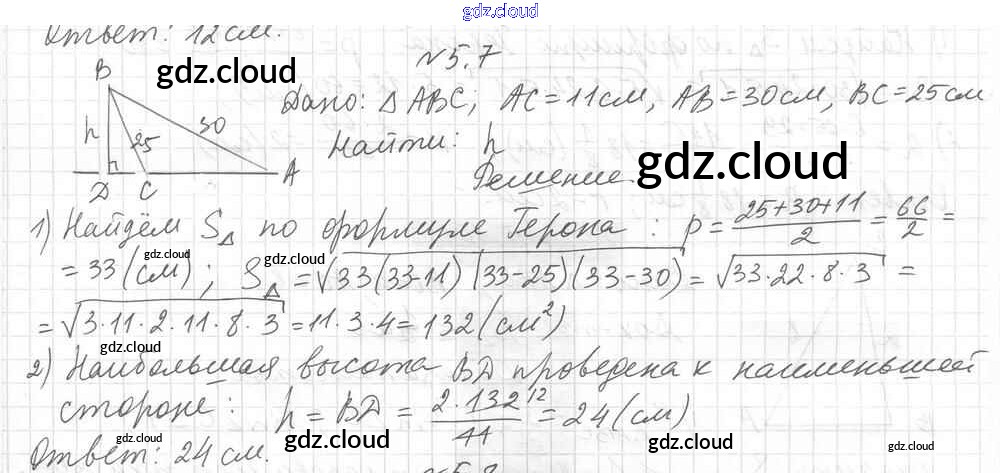 gdz.cloud
Ответ: 12 см.
№5.7
B
gdz.cloud
Дано: △ABC; AC=11см, AB=30см, BC=25см
h
25
30
Найти: h
gdz.cloud
D C A
Решение
1) Найдём S△ по формуле Герона: p = (25+30+11)/2 = 66/2 =
gdz.cloud
gdz.cloud
= 33 (см); S△ = √33(33-11)(33-25)(33-30) = √33·22·8·3 =
= √3·11·2·11·8·3 = 11·3·4 = 132 (см²)
gdz.cloud
gdz.cloud
2) Наибольшая высота BD проведена к наименьшей
стороне: h = BD = 2·132 12/11 = 24 (см)
gdz.cloud
gdz.cloud
gdz.cloud
gdz.cloud
Ответ: 24 см.